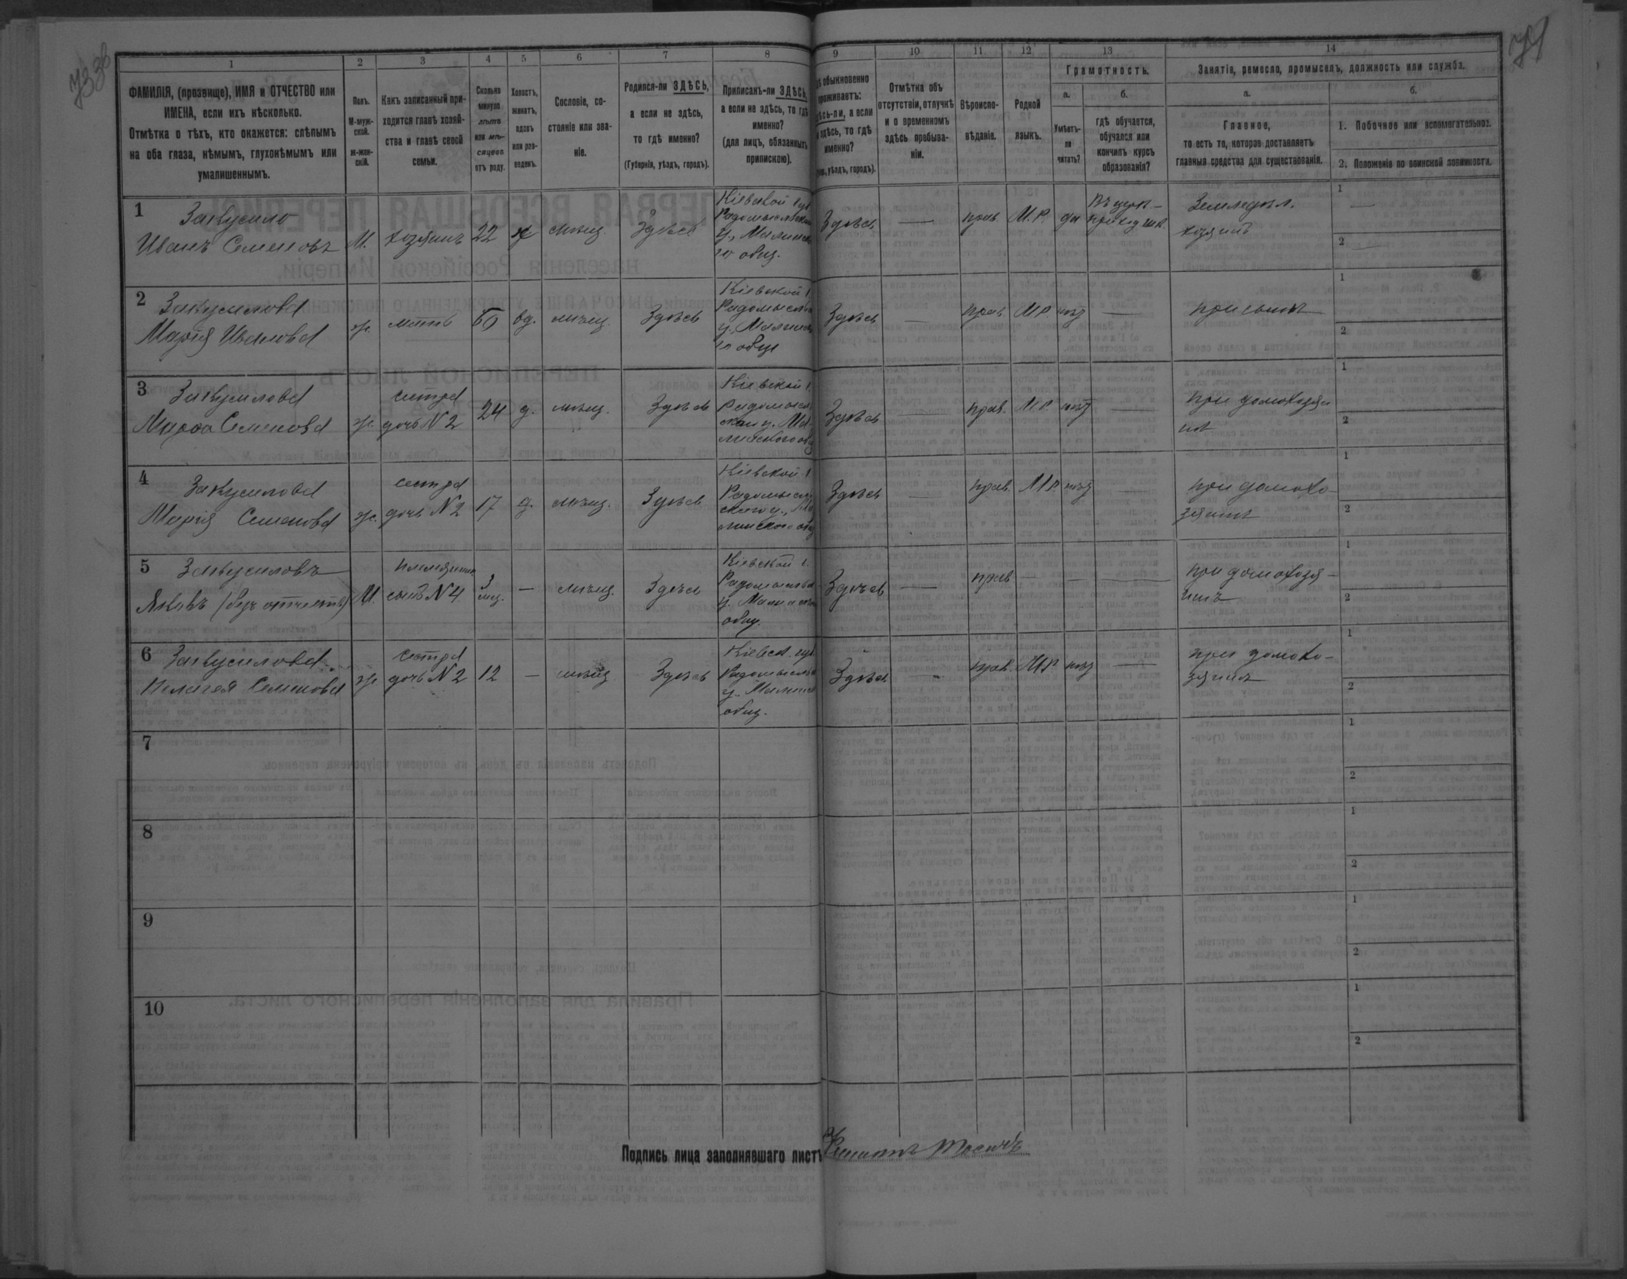 1 2 3 4 5 6 7 8 9 10 11 12 13 14
ФАМИЛІЯ, (прозвище), ИМЯ и ОТЧЕСТВО или ИМЕНА, если ихъ нѣсколько.
Отмѣтка о тѣхъ, кто окажется: слѣпымъ на оба глаза, нѣмымъ, глухонѣмымъ или умалишеннымъ.
Полъ.
М-мужской.
ж-женскій.
Какъ записанный приходится главѣ хозяйства и главѣ своей семьи.
Сколько минуло лѣтъ или мѣсяцевъ отъ роду.
Холостъ, женатъ, вдовъ или разведенъ.
Сословіе, состояніе или званіе.
Родился-ли ЗДѢСЬ, а если не здѣсь, то гдѣ именно?
(Губернія, уѣздъ, городъ).
Приписанъ-ли ЗДѢСЬ, а если не здѣсь, то гдѣ именно?
(для лицъ, обязанныхъ припискою).
обыкновенно проживаетъ: здѣсь-ли, а если не здѣсь, то гдѣ именно?
уѣздъ, городъ).
Отмѣтка объ отсутствіи, отлучкѣ и о временномъ здѣсь пребываніи.
Вѣроисповѣданіе.
Родной языкъ.
Грамотность.
а.
Умѣетъ-ли читать?
б.
гдѣ обучается, обучался или кончилъ курсъ образованія?
Занятія, ремесло, промыселъ, должность или служба.
а.
Главное,
то есть то, которое доставляетъ главныя средства для существованія.
б.
1. Побочное или вспомогательное.
2. Положеніе по воинской повинности.
1 Закусило
Иванъ Семеновъ М. хозяинъ 22 х мѣщ Здѣсь Кіевской губ Радомысльск у, Малинск общ. Здѣсь — прав М.Р. да Земледѣл. хозяинъ
2 Закусилова
Марія Иванова ж. мать 60 вд. мѣщ Здѣсь Кіевской г. Радомысльск у, Малинск общ Здѣсь — прав М.Р. нѣт — при сынѣ
3 Закусилова
Марфа Семенова ж. сестра дочь N 2 24 д. мѣщ. Здѣсь Кіевской г. Радомысльскаго у. Малинскаго общ Здѣсь — прав. М.Р. нѣт — при домохозяинѣ
4 Закусилова
Марія Семенова ж. сестра дочь N 2 17 д. мѣщ. Здѣсь Кіевской г. Радомысльскаго у., Малинскаго общ Здѣсь — прав. М.Р. нѣт — при домохозяинѣ
5 Закусиловъ
Яковъ (безъ отчества) М. племянникъ сынъ N 4 3 мѣс. — мѣщ. Здѣсь Кіевской г. Радомысльск у. Малинск общ. Здѣсь — прав — — — при домохозяинѣ
6 Закусилова
Пелагея Семенова ж. сестра дочь N 2 12 — мѣщ Здѣсь Кіевск. губ Радомысльск у. Малинск общ. Здѣсь - прав. М.Р. нѣт — при домохозяинѣ
7
8
9
10
Подпись лица заполнявшаго листъ